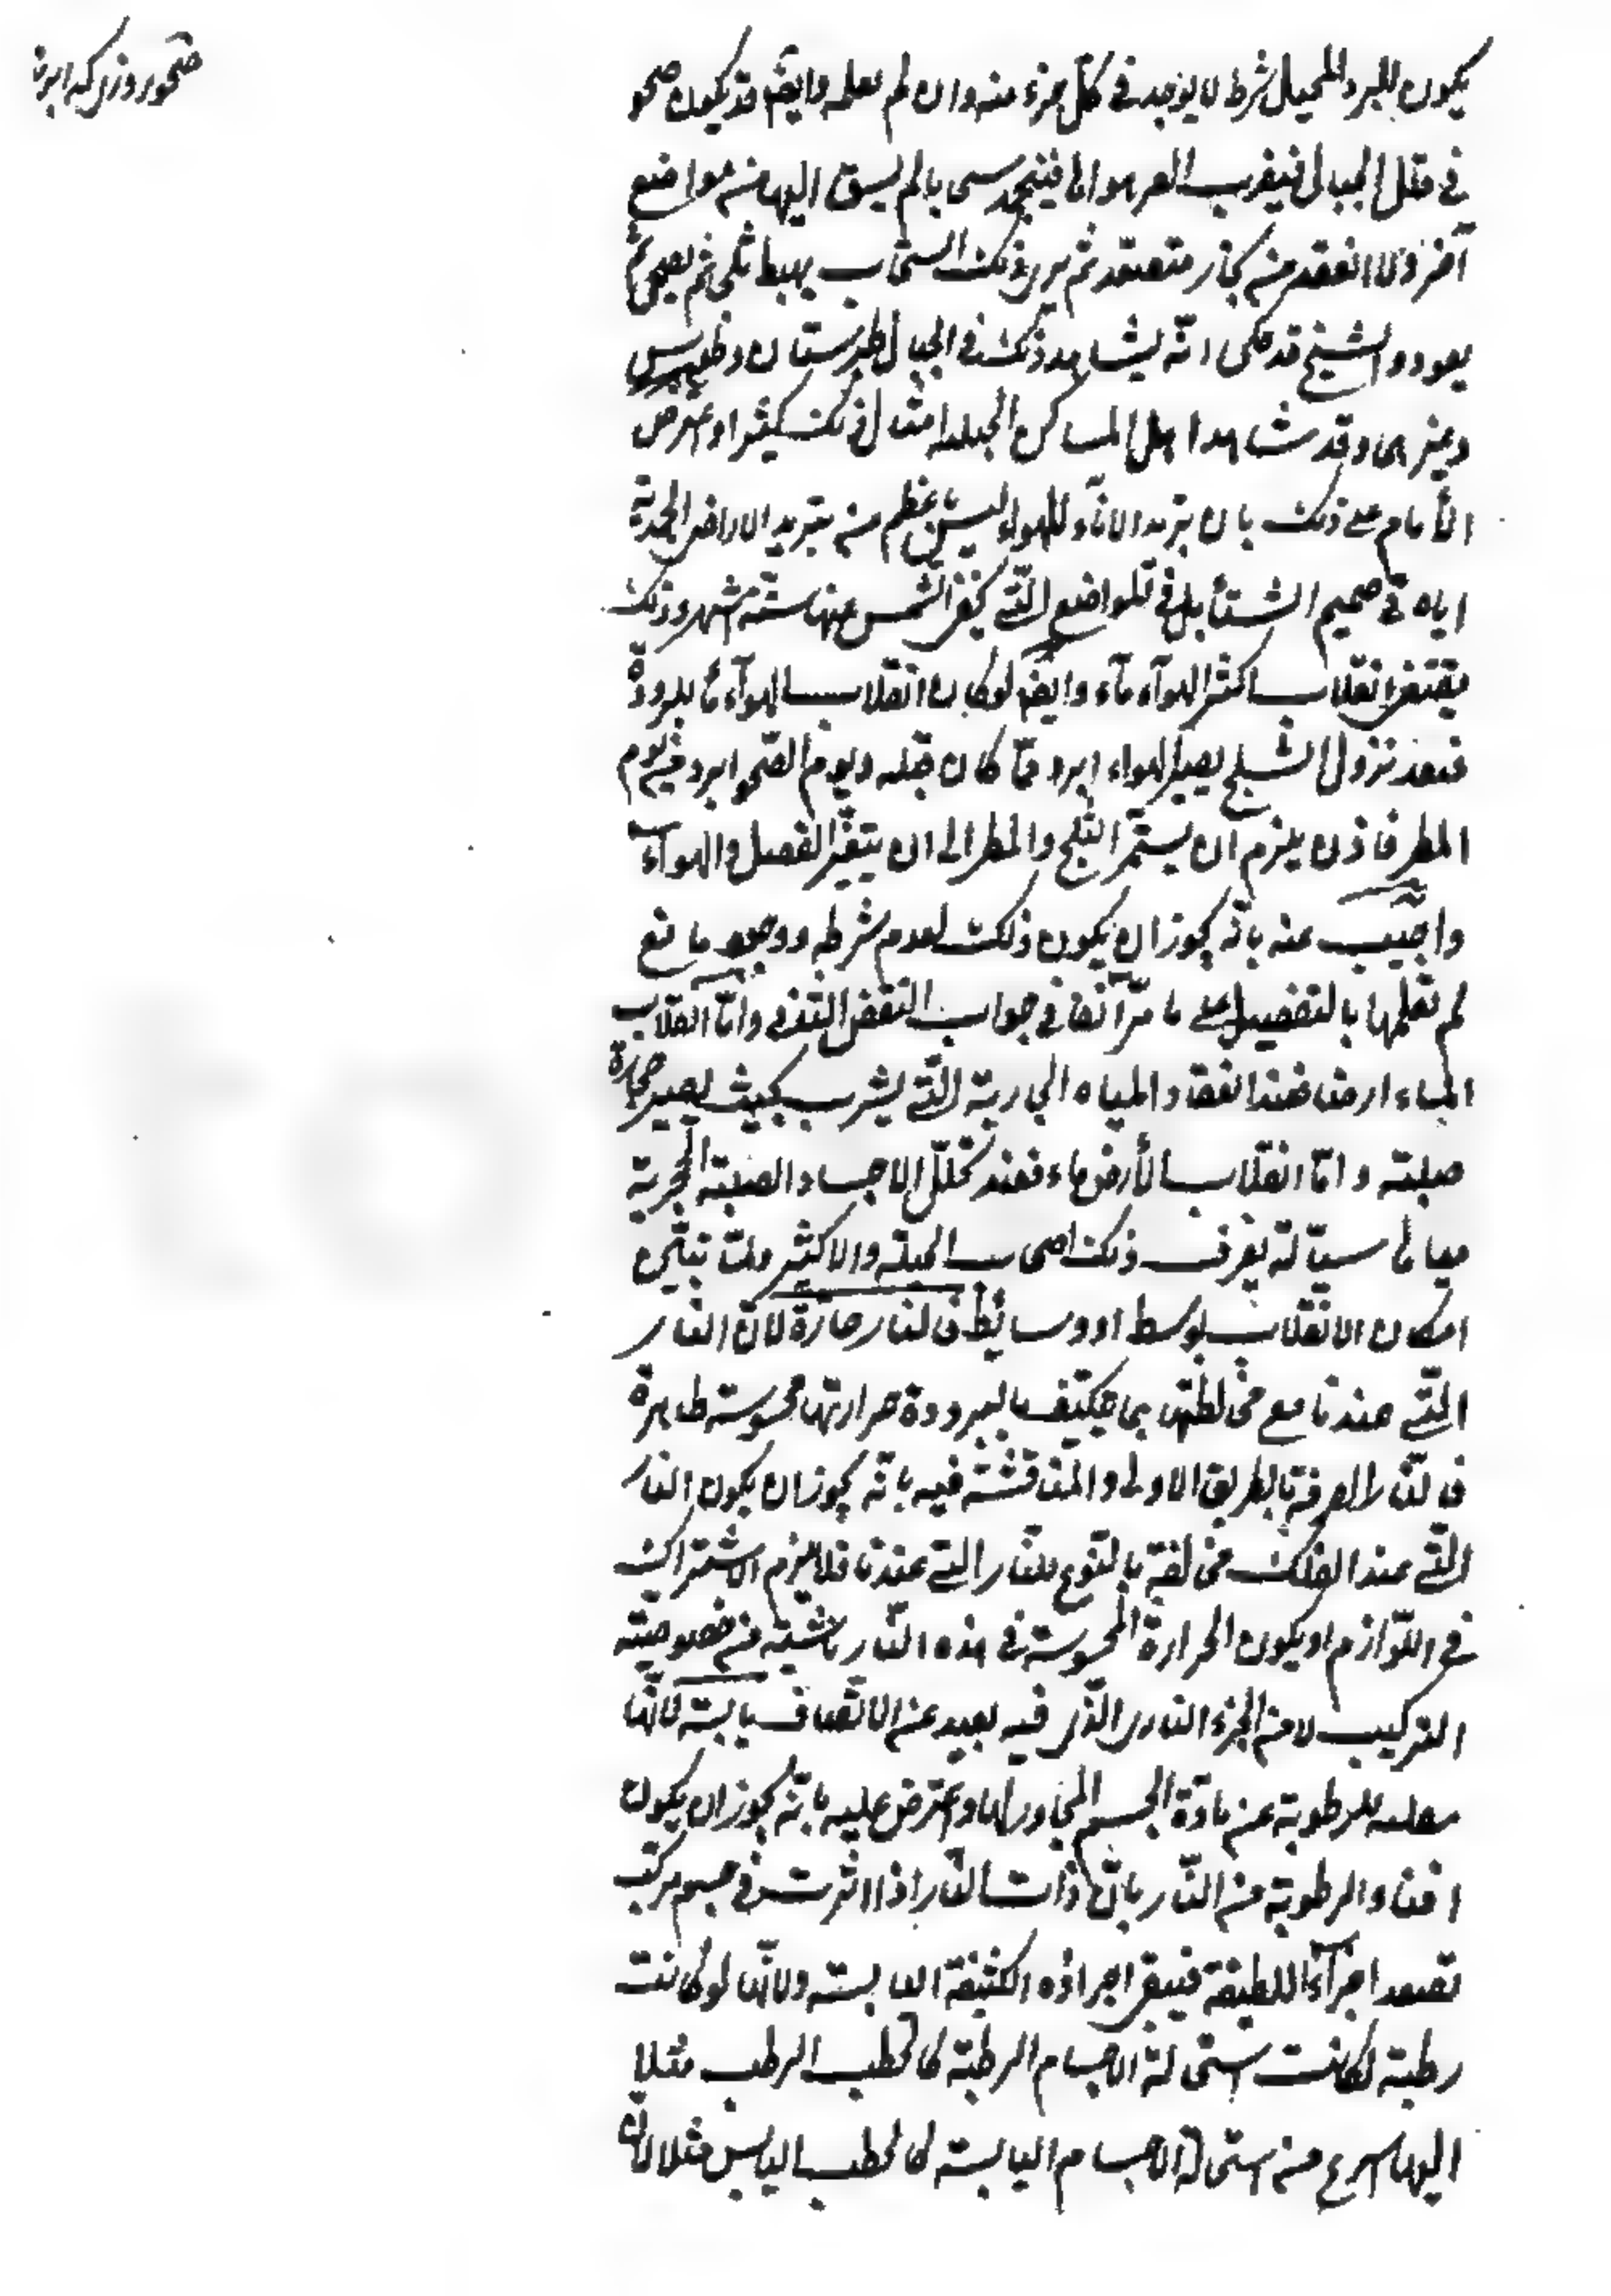 صحو روزی که ابر نا
يكون للبرد المحيل شرط لا يوجد في كل جزء منه وان لم نعلمه وايضه قد يكون صحو
في قلل الجبال فيضرب الصر هوائها فينجمد سحابا لم يسق اليها من مواضع
آخر ولا انعقد من بخار متصعد ثم يرى ذلك السحاب يهبط ثلجا ثم يصحى ثم
يعود والشيخ قد حكى انه يشاهد ذلك في الجبال طبرستان وطوس
وغيرها وقد شاهد اهل المساكن الجبلية امثال ذلك كثيرا واعترض
الأمام على ذلك بان تبريد الاناء للهواء ليس باعظم من تبريد الاراضي الجمدية
اياه في صميم الشتاء بل في المواضع التي يخفى الشمس عنها ستة اشهر وذلك
يقتضي انقلاب اكثر الهوآء مآء وايضه لوكان انقلاب الهوآء مآء لبرودة
فعند نزول الثلج يصير الهواء ابرد مما كان قبله ويوم الصحو ابرد من يوم
المطر فاذن يلزم ان يستمر الثلج والمطر الى ان يتغير الفصل والهوآء
واجيب عنه بانه يجوز ان يكون ذلك لعدم شرط ووجود مانع
لم نعلمها بالتفصيل على ما مر آنفا في جواب النقض الذي واما انقلاب
الماء ارضا فعند انعقاد المياه الجارية التي يشرب بحيث يصير حجارة
صلبة واما انقلاب الأرض ماء فعند تحلل الاجساد الصلبة الحجرية
مياها سيالة يعرف ذلك اصحاب الحيلة والاكثير ولما تبين
امكان الانقلاب بوسط او وسائط فالنار حارة لان النار
التي عندنا مع مخالطتها بما يكيف بالبرودة حرارتها محسوسة ظاهرة
فالنار الصرفة بالطريق الاولى والمناقشة فيه بانه يجوز ان يكون النار
التي عند الفلك مخالفة بالنوع للنار التي عندنا فلا يلزم الاشتراك
في اللوازم او يكون الحرارة المحسوسة في هذه النار ناشية من خصوصية
التركيب لا من الجزء الناري الذي فيه بعيد عن الانصاف يابسة لانها
للرطوبة عن مادة الجسم المجاور لها واعترض عليه بانه يجوز ان يكون
افناء الرطوبة من النار بان ذات النار اذا اثرت في جسم مركب
تصعد اجزآئه اللطيفة فيبقى اجزاؤه الكثيفة اليابسة ولانها لوكانت
رطبة لكانت استحالة الاجسام الرطبة كالحطب الرطب مثلا
اليها اسرع من استحالة الاجسام اليابسة كالحطب اليابس مثلا لان